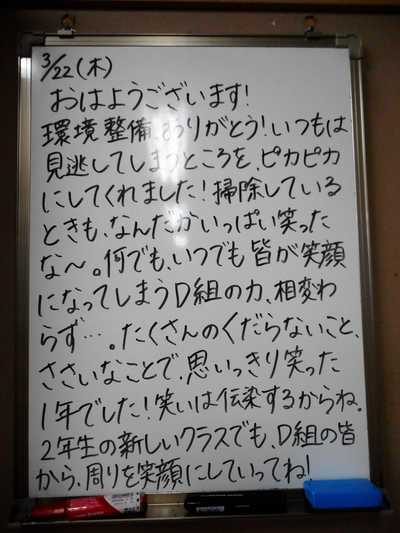 3/22(木)
おはようございます!
環境整備、ありがとう!いつもは
見逃してしまうところを、ピカピカ
にしてくれました!掃除している
ときも、なんだかいっぱい笑った
な〜。何でも、いつでも皆が笑顔
になってしまうD組の力、相変わ
らず…。たくさんのくだらないこと、
ささいなことで、思いっきり笑った
1年でした!笑いは伝染するからね。
2年生の新しいクラスでも、D組の皆
から、周りを笑顔にしていってね!